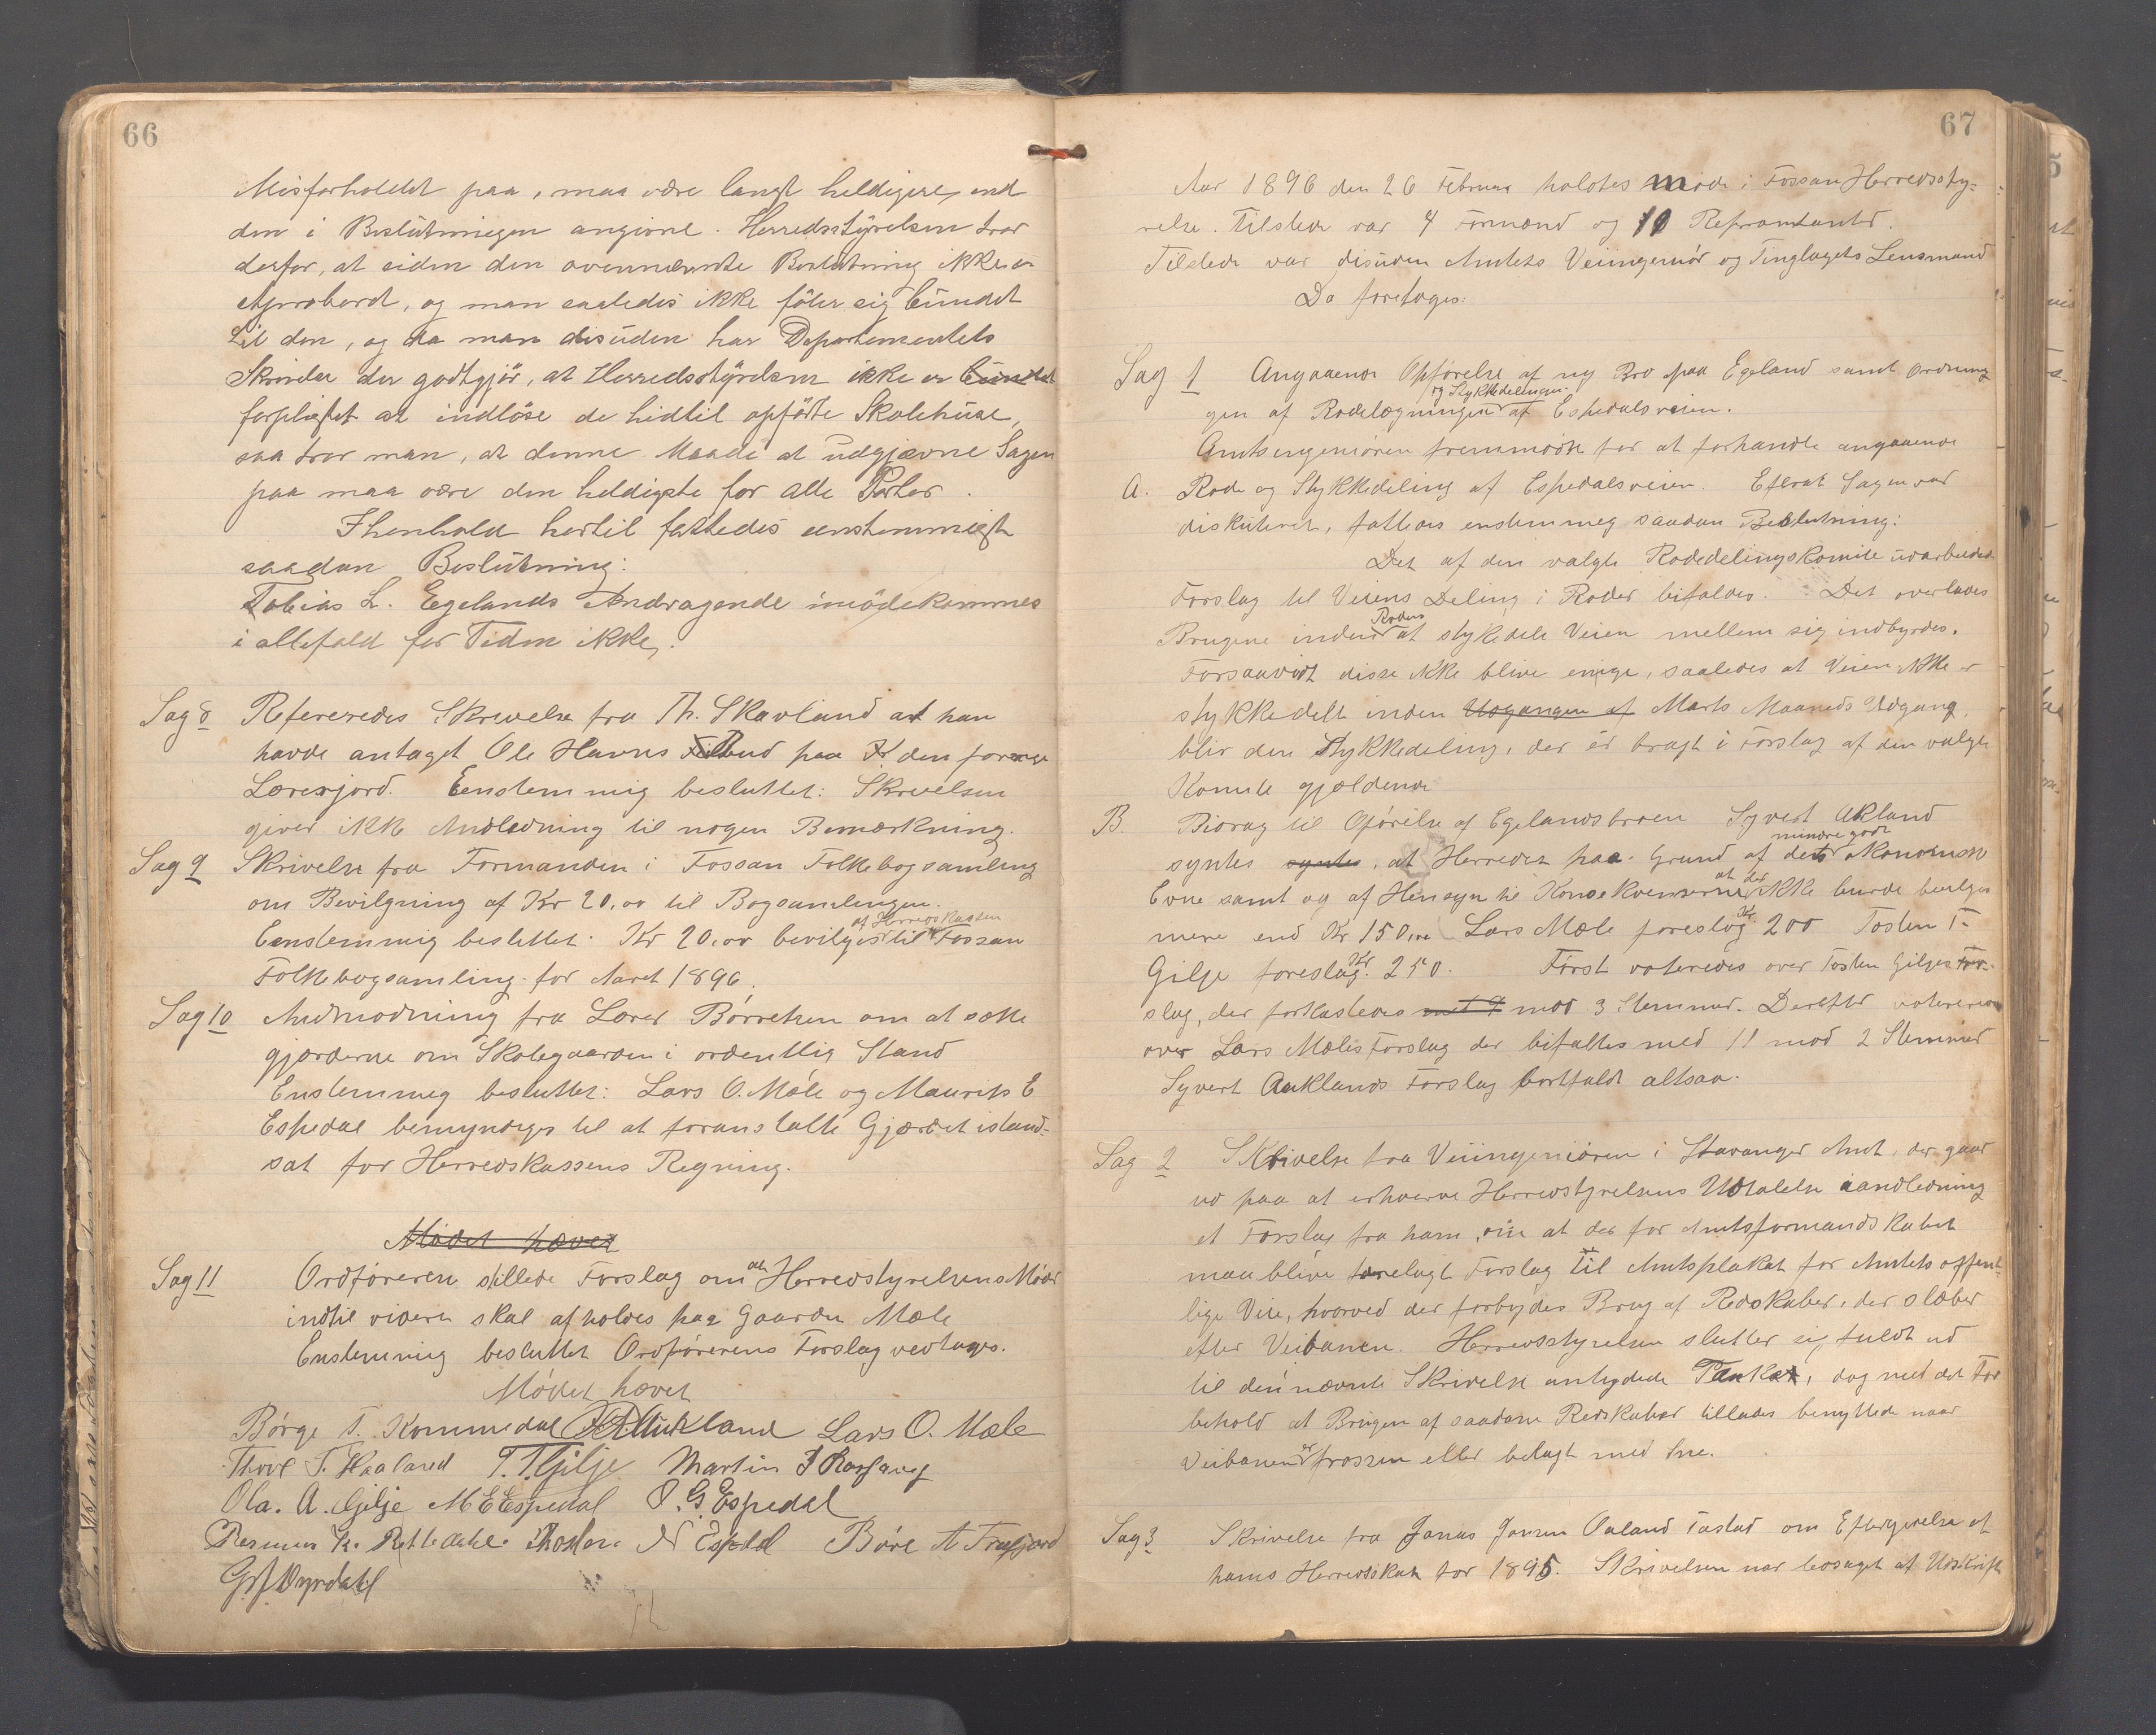 66
Misforholdet paa, maa være langt heldigere end
den i Beslutningen angivne. Herredsstyrelsen tror
derfor, at siden den ovennævnte Beslutning ikke er
Aprobert, og man saaledes ikke föler sig bundet
til den, og da man desuden har Departementets
Skrivelse der godtgjör, at Herredsstyrelsen ikke er bundet
forpligtet at indlöse de hidtil opförte Skolehuse,
saa tror man, at denne Maade at udgjævne Sagen
paa maa være den heldigste for alle Parter.
I henhold hertil fattedes eenstemmigst
saadan Beslutning:
Tobias L. Egelands Andragende imödekommes
i allefald for Tiden ikke.
Sag 8 Refereredes Skrivelse fra Th. Skavland at han
havde antaget Ole Havns Bud paa den forrige
Lærerjord. Eenstemmig besluttet: Skrivelsen
giver ikke Andledning til nogen Bemærkning.
Sag 9 Skrivelse fra Formanden i Fossan Folkebogsamling
om Bevilgning af Kr 20,00 til Bogsamlingen.
af Herredskassen
Eenstemmig besluttet: Kr 20,00 bevilges til Fossan
Folkebogsamling for Aaret 1896.
Sag 10 Andmodning fra Lærer Börretsen om at sætte
gjærderne om Skolegaarden i ordentlig Stand
Enstemmig besluttet: Lars O. Mæle og Maurits E
Espedal bemyndiges til at foranstalte Gjærdet istand-
sat for Herredskassens Regning.
Mødet hævet
Sag 11 Ordföreren stillede Forslag om at Herredstyrelsens Möder
indtil videre skal afholdes paa Gaarden Mæle
Enstemmig besluttet Ordförerens Forslag vedtages.
Mödet hævet
Börge T. Kommedal Aukland Lars O. Mæle
Thore T. Haaland T. T. Gilje Martin
Ola. A. Gilje M E Espedal O. G. Espedal
Rasmus Rettedal Espedal Böre A Frafjord
Dyrdahl
67
Aar 1896 den 26 Februar holdtes Møde i Fossan Herredssty-
relse. Tilstede var 4 Formænd og 10 Repræsentanter.
Tilstede var desuden Amtets Veiingeniör og Tinglagets Lensmand
Da foretoges:
Sag 1 Angaaende Opförelse af ny Bro paa Egeland samt Ordning
og Stykkedelingen
gen af Rodelægningen af Espedalsveien.
Amtsingeniören fremmødte for at forhandle angaaende
A. Rode og Stykkedeling af Espedalsveien. Efterat Sagen var
diskuteret, fattedes enstemmig saadan Beslutning:
Det af den valgte Rodedelingskomite udarbeidede
Forslag til Veiens Deling i Roder bifaldes. Det overlades
Rodens
Brugene inden at stykkedele Veien mellem sig indbyrdes.
Forsaavidt disse ikke blive enige, saaledes at Veien ikke er
stykkedelt inden Udgangen af Marts Maaneds Udgang,
blir den Stykkedeling, der er bragt i Forslag af den valgte
Komite gjældende
B. Bidrag til Oförelse af Egelandsbroen Syvert Akland
mindre gode
syntes syntes, at Herredet paa Grund af dets økonomiske
Evne samt og af Hensyn til Konsekvenserne at der ikke burde bevilges
mere end Kr 150,00 Lars Mæle foreslog Kr. 200 Tosten T.
Gilje foreslog Kr. 250. Först voteredes over Tosten Giljes For-
slag, der forkastedes med 9 mod 3 Stemmer. Derefter voteredes
over Lars Mæles Forslag der bifaltes med 11 mod 2 Stemmer
Syvert Auklands Forslag bortfaldt altsaa.
Sag 2 Skrivelse fra Veiingeniören i Stavanger Amt, der gaar
ud paa at erhverve Herredstyrelsens Udtalelse iandledning
et Forslag fra ham om at der for Amtsformandskabet
maa blive forelagt Forslag til Amtsplakat for Amtets offent-
lige Veie, hvorved der forbydes Brug af Redskaber, der slæber
efter Veibanen. Herredsstyrelsen slutter sig fuldt ud
til den i nævnte Skrivelse antydede Tanke, dog med det For
behold at Brugen af saadane Redskaber tillades benyttede naar
Veibanen er frossen eller belagt med Sne.
Sag 3 Skrivelse fra Jonas Jonsen Oaland Tastad om Eftergivelse af
hans Herredsskat for 1895. Skrivelsen var ledsaget af Udskrift